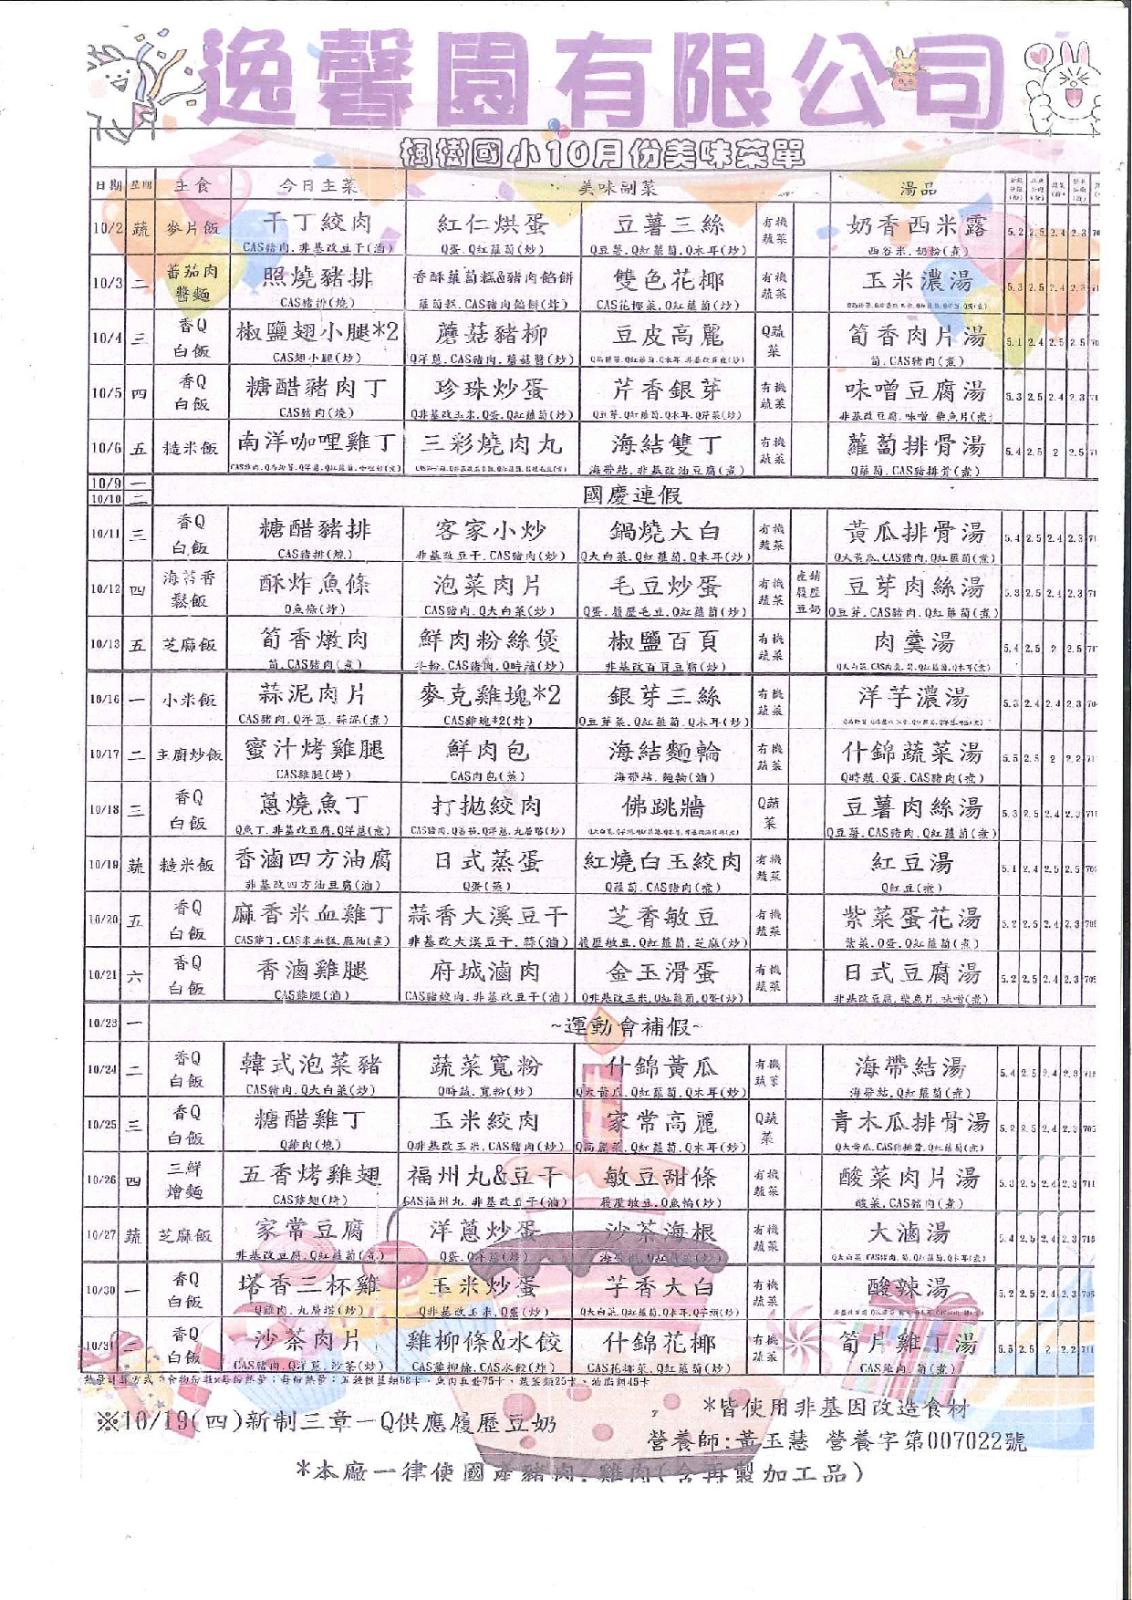 逸馨園有限公司
楓樹國小10月份美味菜單
日期 星期 主食 今日主菜 美味副菜 湯品
10/2 蔬 麥片飯 干丁絞肉 紅仁烘蛋 豆薯三絲 有機蔬菜 奶香西米露
CAS豬肉.非基改豆干(滷) Q蛋.Q紅蘿蔔(炒) Q豆薯.Q紅蘿蔔.Q木耳(炒) 西谷米.奶粉(煮)
10/3 二 蕃茄肉醬麵 照燒豬排 香酥蘿蔔糕&豬肉餡餅 雙色花椰 有機蔬菜 玉米濃湯
CAS豬排(燒) 蘿蔔糕.CAS豬肉餡餅(炸) CAS花椰菜.Q紅蘿蔔(炒)
10/4 三 香Q白飯 椒鹽翅小腿*2 蘑菇豬柳 豆皮高麗 Q蔬菜 筍香肉片湯
CAS翅小腿(炒) Q洋蔥.CAS豬肉.蘑菇醬(炒) 筍.CAS豬肉(煮)
10/5 四 香Q白飯 糖醋豬肉丁 珍珠炒蛋 芹香銀芽 有機蔬菜 味噌豆腐湯
CAS豬肉(燒) Q非基改玉米.Q蛋.Q紅蘿蔔(炒) Q豆芽.Q紅蘿蔔.Q木耳.Q芹菜(炒) 非基改豆腐.味噌.柴魚片(煮)
10/6 五 糙米飯 南洋咖哩雞丁 三彩燒肉丸 海結雙丁 有機蔬菜 蘿蔔排骨湯
海帶結.非基改油豆腐(煮) Q蘿蔔.CAS豬排骨(煮)
10/9 一
10/10 二 國慶連假
10/11 三 香Q白飯 糖醋豬排 客家小炒 鍋燒大白 有機蔬菜 黃瓜排骨湯
CAS豬排(燒) 非基改豆干.CAS豬肉(炒) Q大白菜.Q紅蘿蔔.Q木耳(炒) Q大黃瓜.CAS豬肉.Q紅蘿蔔(煮)
10/12 四 海苔香鬆飯 酥炸魚條 泡菜肉片 毛豆炒蛋 有機蔬菜 產銷履歷豆奶 豆芽肉絲湯
Q魚條(炸) CAS豬肉.Q大白菜(炒) Q蛋.履歷毛豆.Q紅蘿蔔(炒) Q豆芽.CAS豬肉.Q紅蘿蔔(煮)
10/13 五 芝麻飯 筍香燉肉 鮮肉粉絲煲 椒鹽百頁 有機蔬菜 肉羹湯
筍.CAS豬肉(煮) 冬粉.CAS豬肉.Q時蔬(炒) 非基改百頁豆腐(炒)
10/16 一 小米飯 蒜泥肉片 麥克雞塊*2 銀芽三絲 有機蔬菜 洋芋濃湯
CAS豬肉.Q洋蔥.蒜泥(煮) CAS雞塊*2(炸) Q豆芽菜.Q紅蘿蔔.Q木耳(炒)
10/17 二 主廚炒飯 蜜汁烤雞腿 鮮肉包 海結麵輪 有機蔬菜 什錦蔬菜湯
CAS雞腿(烤) CAS肉包(蒸) 海帶結.麵輪(滷) Q時蔬.Q蛋.CAS豬肉(煮)
10/18 三 香Q白飯 蔥燒魚丁 打拋絞肉 佛跳牆 Q蔬菜 豆薯肉絲湯
Q魚丁.非基改豆腐.Q洋蔥(煮) CAS豬肉.Q番茄.Q洋蔥.九層塔(炒) Q豆薯.CAS豬肉.Q紅蘿蔔(煮)
10/19 蔬 糙米飯 香滷四方油腐 日式蒸蛋 紅燒白玉絞肉 有機蔬菜 紅豆湯
非基改四方油豆腐(滷) Q蛋(蒸) Q蘿蔔.CAS豬肉(煮) Q紅豆(煮)
10/20 五 香Q白飯 麻香米血雞丁 蒜香大溪豆干 芝香敏豆 有機蔬菜 紫菜蛋花湯
CAS雞丁.CAS米血糕.麻油(煮) 非基改大溪豆干.蒜(滷) 履歷敏豆.Q紅蘿蔔.芝麻(炒) 紫菜.Q蛋.Q紅蘿蔔(煮)
10/21 六 香Q白飯 香滷雞腿 府城滷肉 金玉滑蛋 有機蔬菜 日式豆腐湯
CAS雞腿(滷) CAS豬絞肉.非基改豆干(滷) Q非基改玉米.Q紅蘿蔔.Q蛋(炒) 非基改豆腐.柴魚片.味噌(煮)
10/23 一 ~運動會補假~
10/24 二 香Q白飯 韓式泡菜豬 蔬菜寬粉 什錦黃瓜 有機蔬菜 海帶結湯
CAS豬肉.Q大白菜(炒) Q時蔬.寬粉(炒) Q大黃瓜.Q紅蘿蔔.Q木耳(炒) 海帶結.Q紅蘿蔔(煮)
10/25 三 香Q白飯 糖醋雞丁 玉米絞肉 家常高麗 Q蔬菜 青木瓜排骨湯
Q雞肉(燒) Q非基改玉米.CAS豬肉(炒) Q高麗菜.Q紅蘿蔔.Q木耳(炒)
10/26 四 三鮮燴麵 五香烤雞翅 福州丸&豆干 敏豆甜條 有機蔬菜 酸菜肉片湯
CAS雞翅(烤) CAS福州丸.非基改豆干(滷) 履歷敏豆.Q魚輪(炒) 酸菜.CAS豬肉(煮)
10/27 蔬 芝麻飯 家常豆腐 洋蔥炒蛋 沙茶海根 有機蔬菜 大滷湯
非基改豆腐.Q紅蘿蔔(煮) Q蛋.Q洋蔥(炒)
10/30 一 香Q白飯 塔香三杯雞 玉米炒蛋 芋香大白 有機蔬菜 酸辣湯
Q雞肉.九層塔(炒) Q非基改玉米.Q蛋(炒) Q大白菜.Q紅蘿蔔.Q木耳.Q芋頭(炒)
10/31 二 香Q白飯 沙茶肉片 雞柳條&水餃 什錦花椰 有機蔬菜 筍片雞丁湯
CAS豬肉.Q洋蔥.沙茶(炒) CAS雞柳條.CAS水餃(炸) CAS花椰菜.Q紅蘿蔔(炒) CAS雞肉.筍(煮)
※10/19(四)新制三章一Q供應履歷豆奶
*皆使用非基因改造食材
營養師:黃玉慧 營養字第007022號
*本廠一律使國產豬肉.雞肉(含再製加工品)